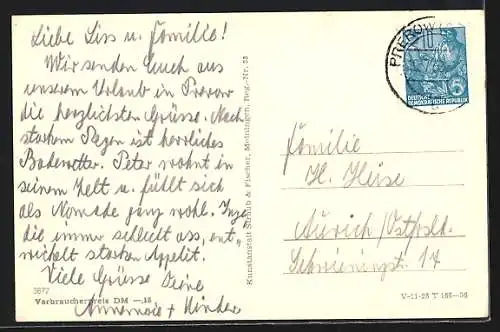 Liebe Liss u. Familie!
Wir senden Euch aus
unserem Urlaub in Prerow
die herzlichsten Grüsse. Nach
starkem Regen ist herrliches
Badewetter. Peter wohnt in
seinem Zelt u. fühlt sich
als Nomade ganz wohl. Inge
die immer schlecht ass, ent,
wickelt starken Appetit.
Viele Grüsse Deine
Annemarie + Kinder
3872
Verbraucherpreis DM —,15
Kunstanstalt Straub & Fischer, Meiningen, Reg.-Nr. 53
PREROW
DEUTSCHE
DEMOKRATISCHE REPUBLIK
5
Familie
H.
Aurich/Ostfrld.
14
V-11-28 T 155—56